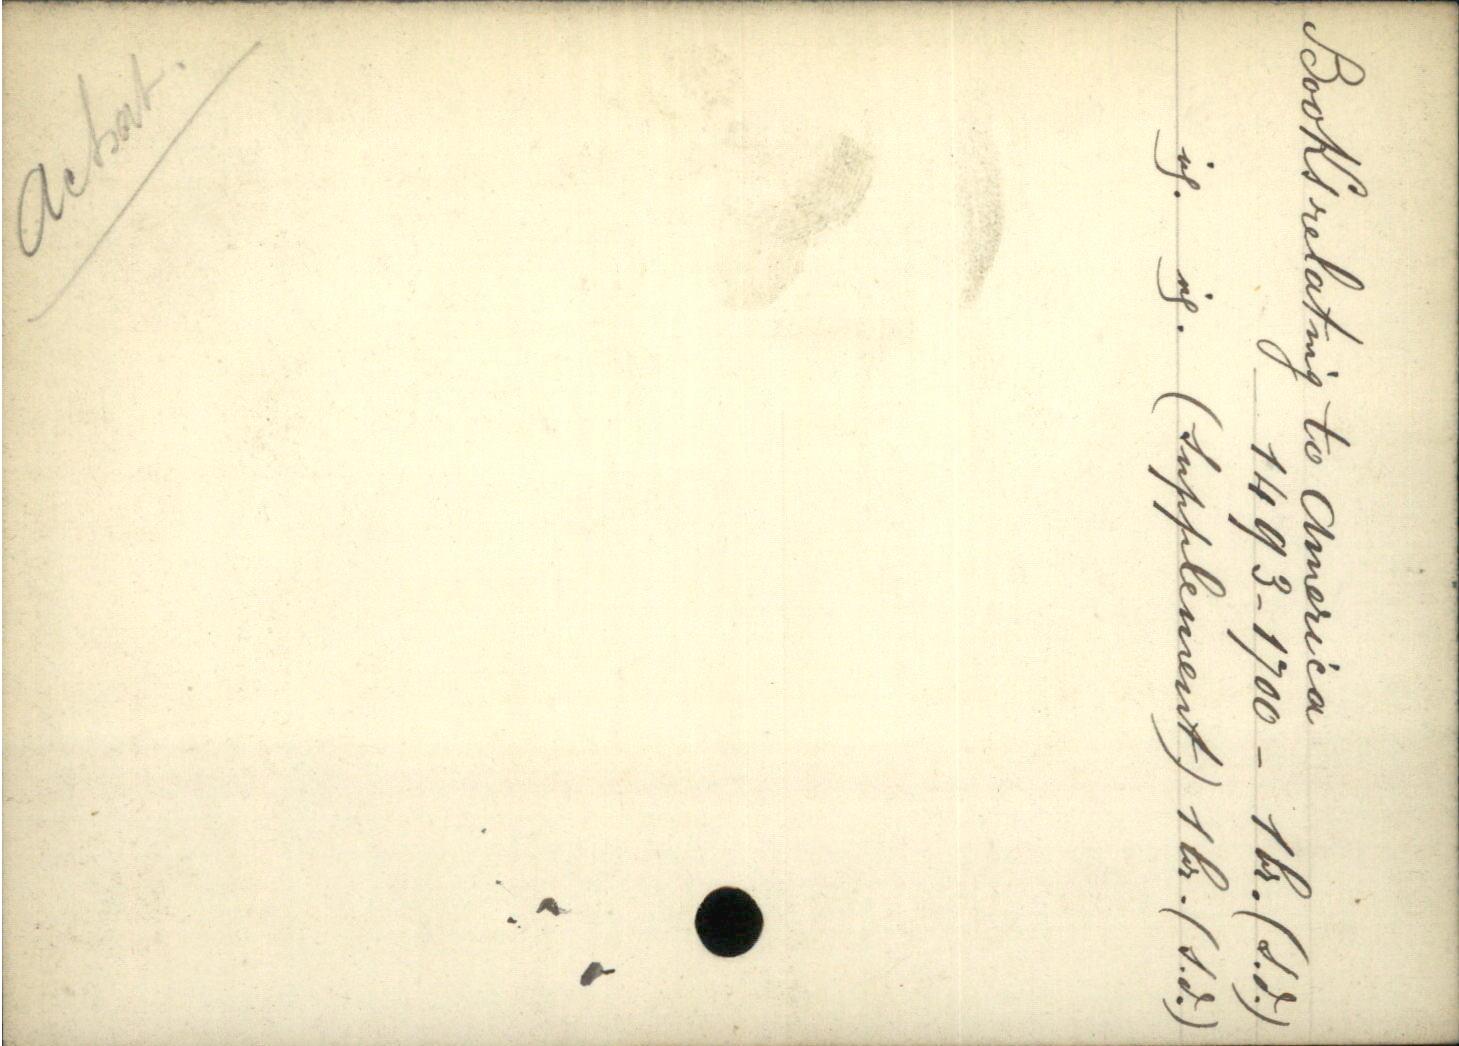 Books relating to America
1493-1700 - 1 br. (s.d.)
id. id. (Supplement) 1 br. (s.d.)
Achat.